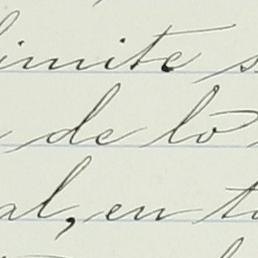 límite s
de lo
al, en to